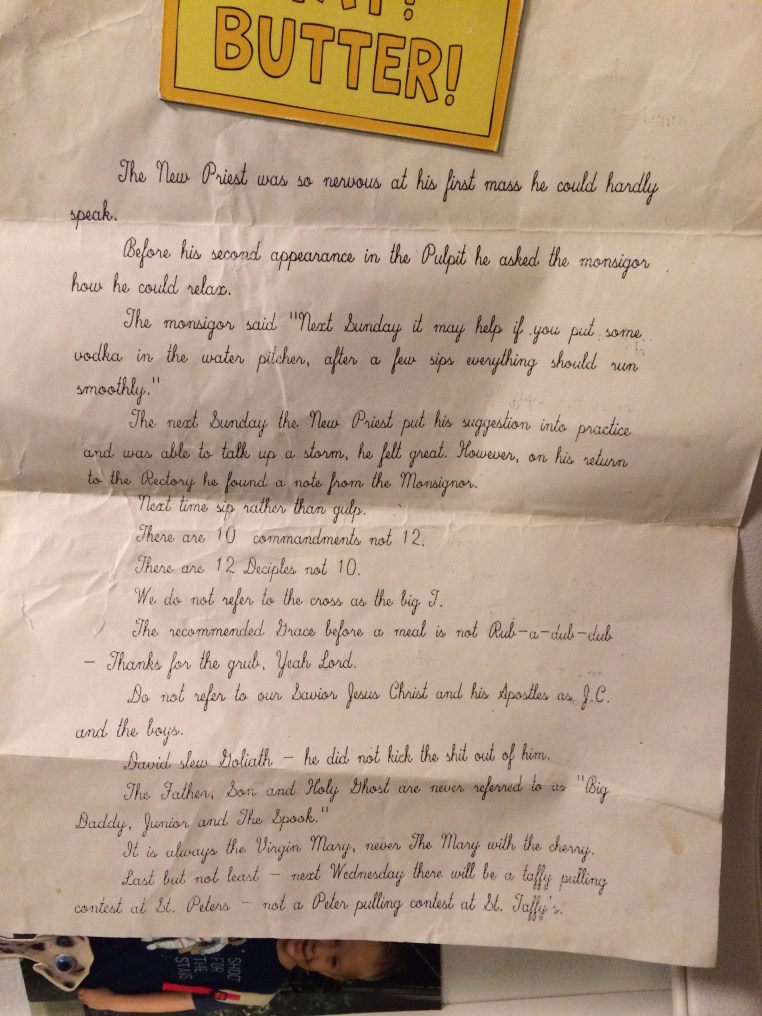 BUTTER!
The New Priest was so nervous at his first mass he could hardly
speak.
Before his second appearance in the Pulpit he asked the monsigor
how he could relax.
The monsigor said "Next Sunday it may help if you put some
vodka in the water pitcher, after a few sips everything should run
smoothly."
The next Sunday the New Priest put his suggestion into practice
and was able to talk up a storm, he felt great. However, on his return
to the Rectory he found a note from the Monsignor.
Next time sip rather than gulp.
There are 10 commandments not 12.
There are 12 Deciples not 10.
We do not refer to the cross as the big T.
The recommended Grace before a meal is not Rub-a-dub-dub
- Thanks for the grub, Yeah Lord.
Do not refer to our Savior Jesus Christ and his Apostles as J.C.
and the boys.
David slew Goliath - he did not kick the shit out of him.
The Father, Son and Holy Ghost are never referred to as "Big
Daddy, Junior and The Spook."
It is always the Virgin Mary, never The Mary with the cherry.
Last but not least - next Wednesday there will be a taffy pulling
contest at St. Peters - not a Peter pulling contest at St. Taffy's.
SHOOT
FOR
THE
STARS